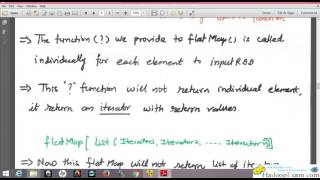 ⇒ The function (?) we provide to flatMap() is called
individually for each element to input RDD
⇒ This "?" function will not return individual element,
it return an iterator with return values.
flatMap[ List (Iterator1, Iterator2, .... Iteratorn)]
⇒ Now this flatMap will not return list of
HadoopExam.com